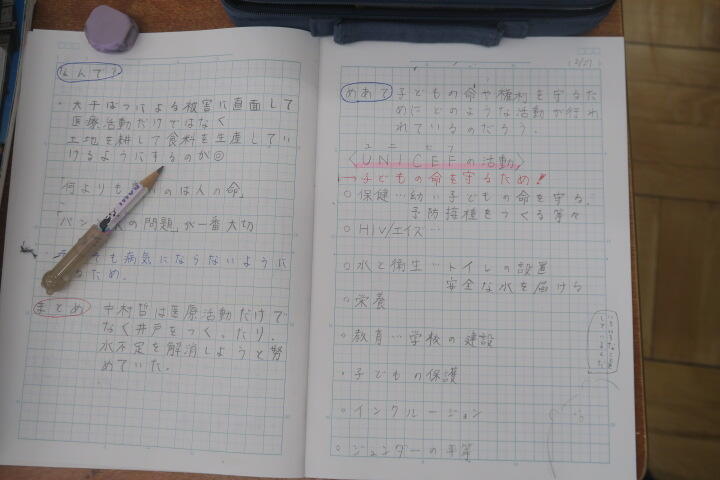 なんで?
・大干ばつによる被害に直面して
医療活動だけではなく
土地を耕して食料を生産してい
けるようにするのが◎
「何よりも のは人の命」
「パンと の問題」が一番大切
も病気にならないように
るため.
まとめ 中村哲は医療活動だけで
なく井戸をつくったり、
水不足を解消しようと努
めていた.
めあて 子どもの命や権利を守るた
めにどのような活動が行わ
れているのだろう.
ユニセフ
〈UNICEFの活動〉
→子どもの命を守るため!
○保健…幼い子どもの命を守る.
予防接種をつくる等々
○HIV/エイズ…
○水と衛生…トイレの設置
安全な水を届ける
○栄養
○教育…学校の建設
○子どもの保護
○インクルージョン
○ジェンダーの平等